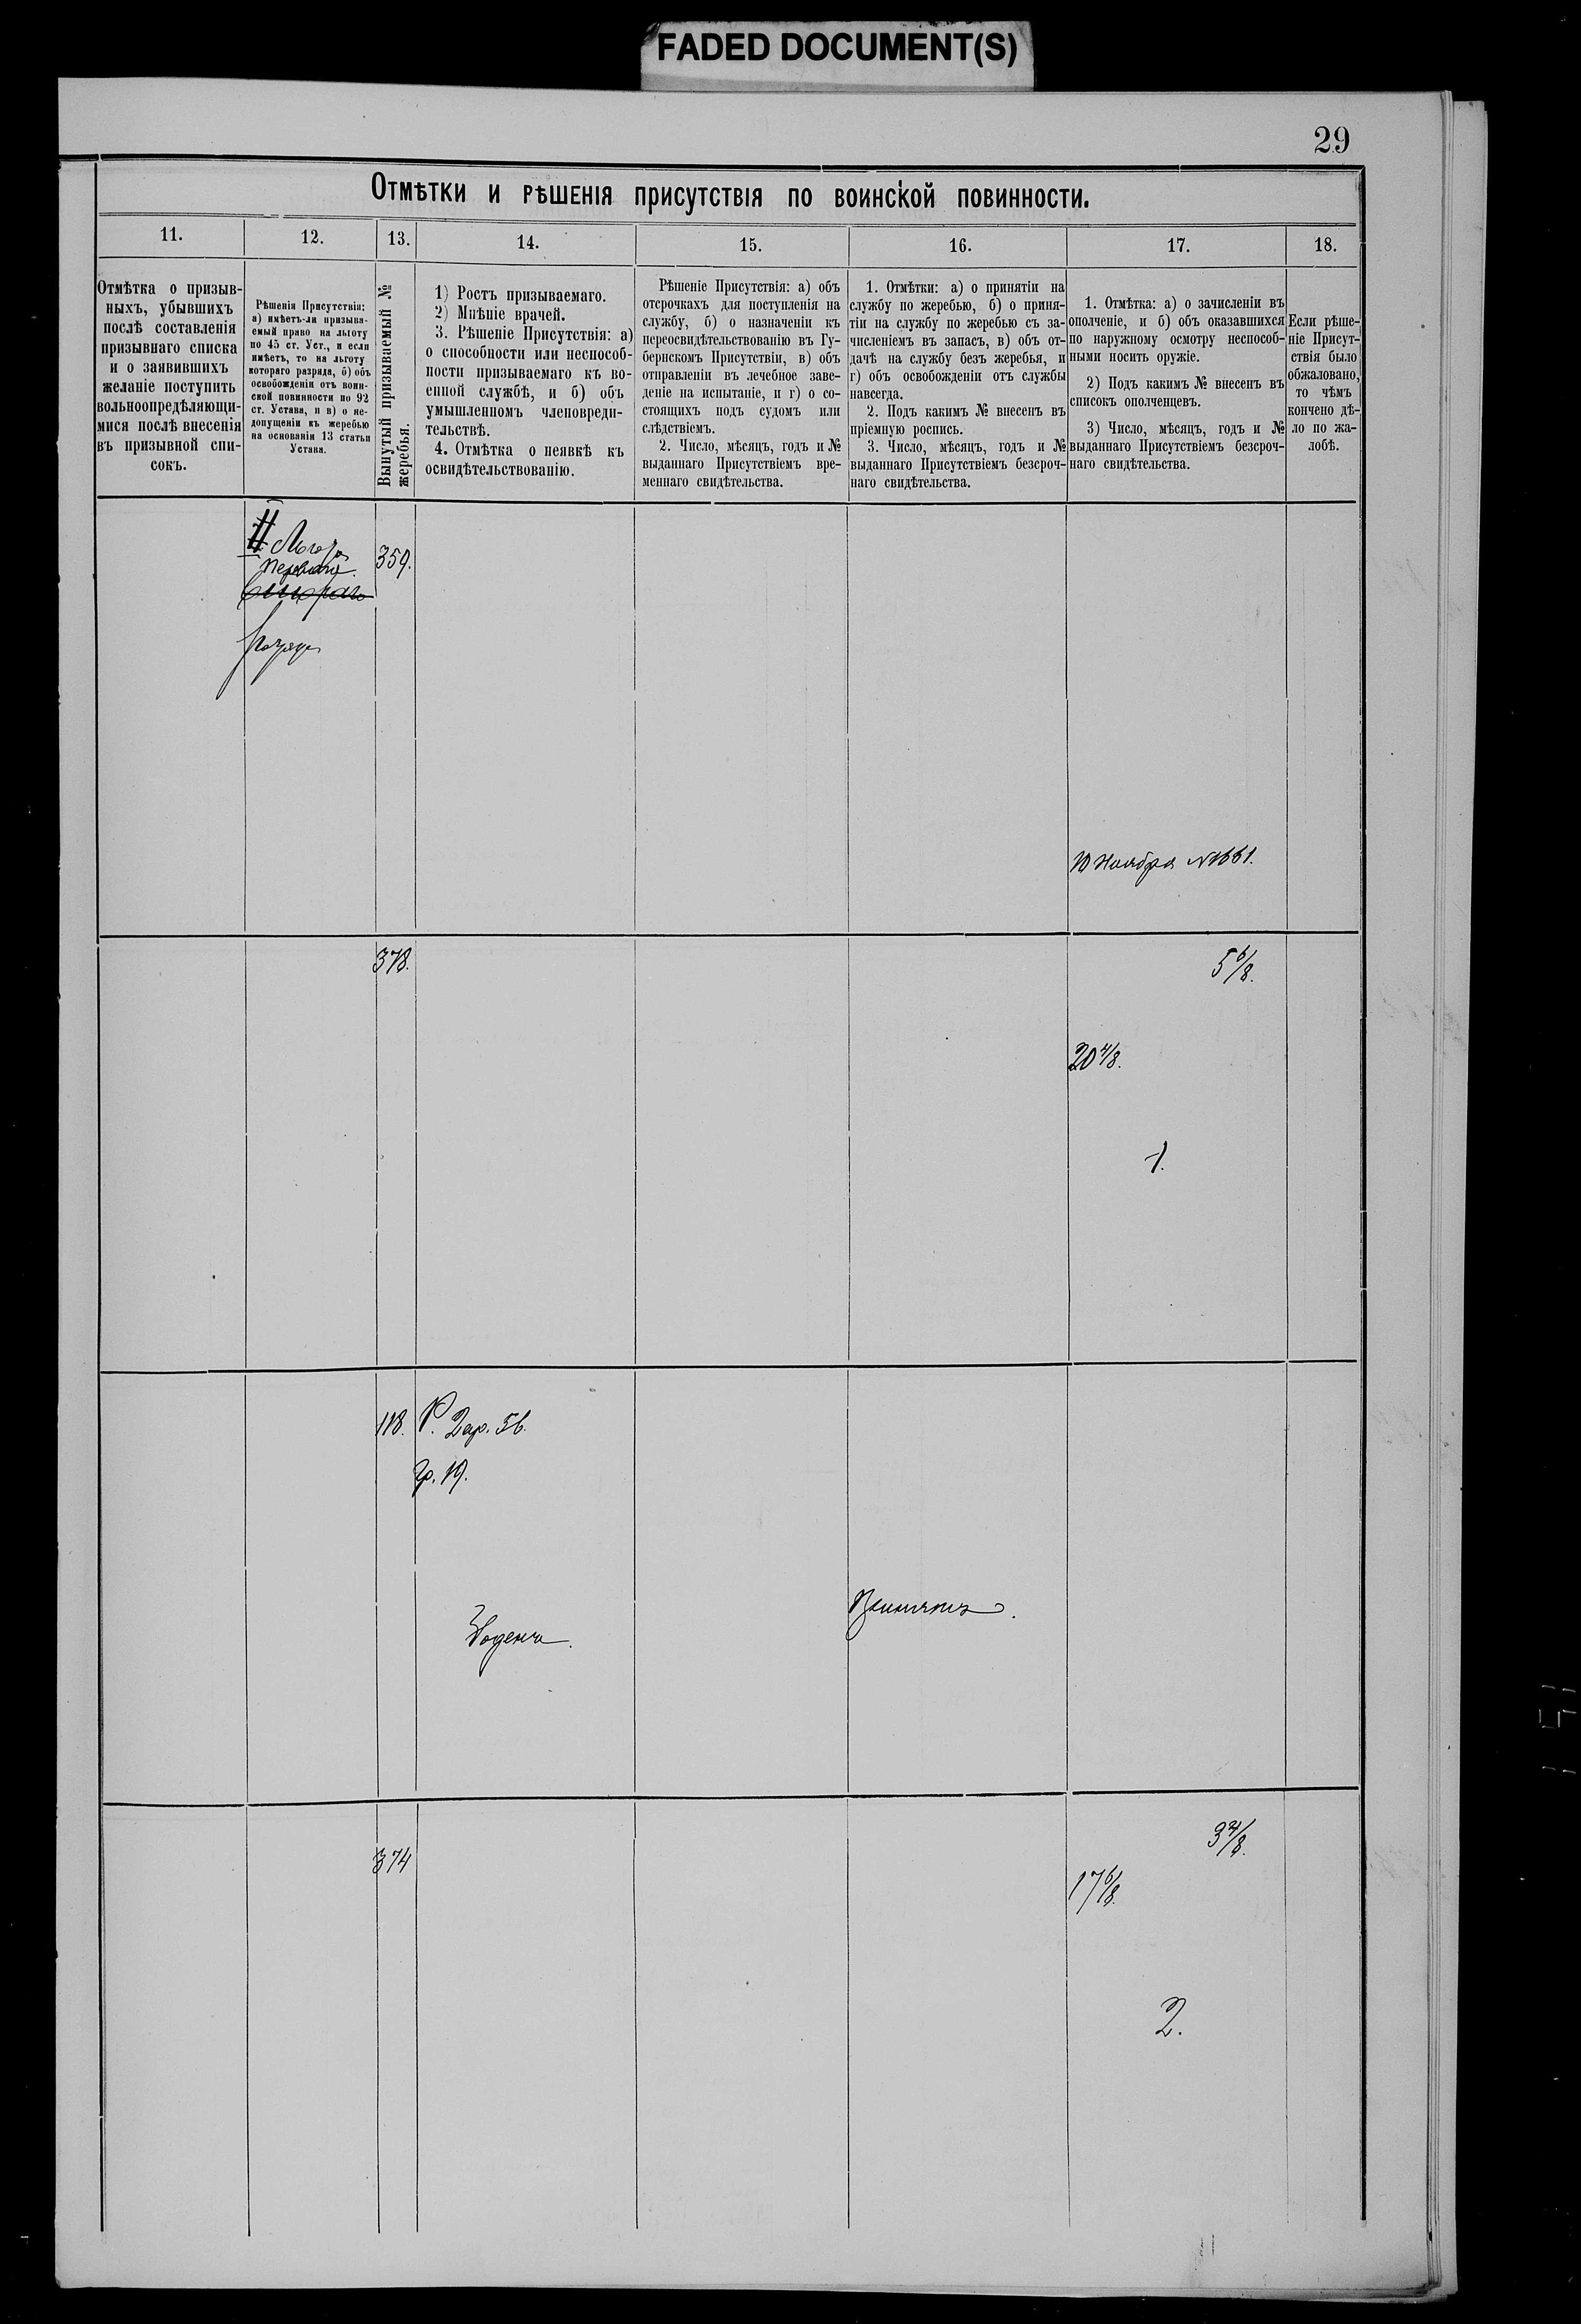 FADED DOCUMENT(S)
29
Отмѣтки и рѣшенія присутствія по воинской повинности.
11.
12.
13.
14.
15.
16.
17.
18.
Отмѣтка о призыв-
ныхъ, убывшихъ
послѣ составленія
призывнаго списка
и о заявившихъ
желаніе поступить
вольноопредѣляющи-
мися послѣ внесенія
въ призывной спи-
сокъ.
Рѣшенія Присутствія:
а) имѣетъ-ли призыва-
емый право на льготу
по 45 ст. Уст., и если
имѣетъ, то на льготу
котораго разряда, б) объ
освобожденіи отъ воин-
ской повинности по 92
ст. Устава, и в) о не-
допущеніи къ жеребью
на основаніи 13 статьи
Устава.
Вынутый призываемый №
жеребья.
1) Ростъ призываемаго.
2) Мнѣніе врачей.
3. Рѣшеніе Присутствія: а)
о способности или неспособ-
ности призываемаго къ во-
енной службѣ, и б) объ
умышленномъ членовреди-
тельствѣ.
4. Отмѣтка о неявкѣ къ
освидѣтельствованію.
Рѣшеніе Присутствія: а) объ
отсрочкахъ для поступленія на
службу, б) о назначеніи къ
переосвидѣтельствованію въ Гу-
бернскомъ Присутствіи, в) объ
отправленіи въ лечебное заве-
деніе на испытаніе, и г) о со-
стоящихъ подъ судомъ или
слѣдствіемъ.
2. Число, мѣсяцъ, годъ и №
выданнаго Присутствіемъ вре-
меннаго свидѣтельства.
1. Отмѣтки: а) о принятіи на
службу по жеребью, б) о приня-
тіи на службу по жеребью съ за-
численіемъ въ запасъ, в) объ от-
дачѣ на службу безъ жеребья, и
г) объ освобожденіи отъ службы
навсегда.
2. Подъ какимъ № внесенъ въ
пріемную роспись.
3. Число, мѣсяцъ, годъ и №
выданнаго Присутствіемъ безсроч-
наго свидѣтельства.
1. Отмѣтка: а) о зачисленіи въ
ополченіе, и б) объ оказавшихся
по наружному осмотру неспособ-
ными носить оружіе.
2) Подъ какимъ № внесенъ въ
списокъ ополченцевъ.
3) Число, мѣсяцъ, годъ и №
выданнаго Присутствіемъ безсроч-
наго свидѣтельства.
Если рѣше-
ніе Присут-
ствія было
обжаловано,
то чѣмъ
кончено дѣ-
ло по жа-
лобѣ.
Льгота
перваго
втораго
разряда
359.
10 Ноября №1661.
378.
5 6/8.
20 4/8.
1.
118.
Р. 2 ар. 5 в.
Гр. 19.
Годенъ.
Принятъ.
374
3 4/8.
17 6/8.
2.